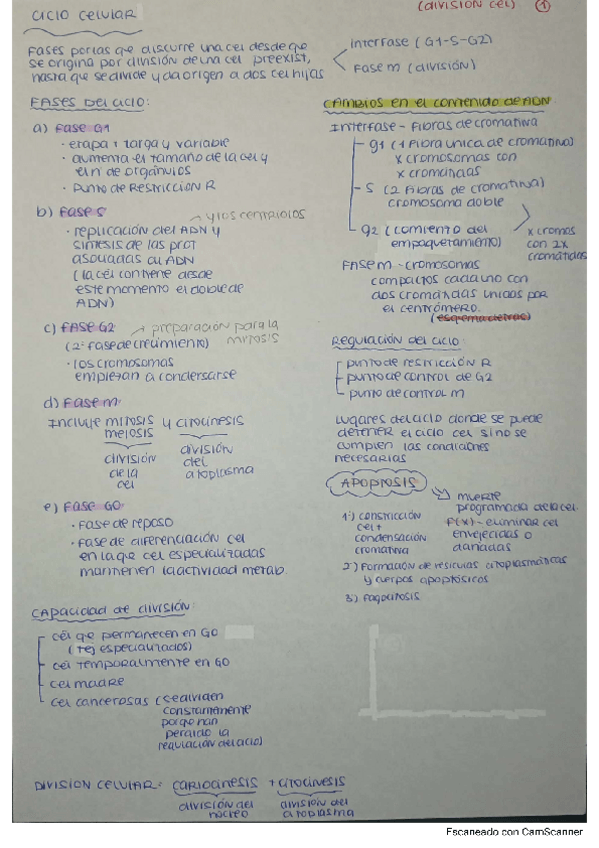 CICLO CELULAR
(división cel) 1
Fases por las que discurre una cel desde que
se origina por división de una cel preexist,
hasta que se divide y da origen a dos cel hijas
interfase (G1-S-G2)
Fase m (división)
FASES DEL CICLO:
a) FASE G1
· etapa + larga y variable
· aumenta el tamaño de la cel y
el n de orgánulos
· Punto de Restricción R
b) FASE S
y los centriolos
· replicación del ADN y
síntesis de las prot
asociadas al ADN
(la cél contiene desde
este momento el doble de
ADN)
c) FASE G2
preparación para la
mitosis
(2ª fase de crecimiento)
· los cromosomas
empiezan a condensarse
d) Fase m
Incluye mitosis y citocinesis
meiosis
división
de la
cel
división
del
citoplasma
e) FASE G0
· Fase de reposo
· Fase de diferenciación cel
en la que cel especializadas
mantienen la actividad metab.
CAPACIDAD DE DIVISIÓN:
cél que permanecen en G0
(tej especializados)
cel temporalmente en G0
cel madre
cel cancerosas (se dividen
constantemente
porque han
perdido la
regulación del ciclo)
CAMBIOS en el contenido de ADN
Interfase - Fibras de cromatina
g1 (1 Fibra única de cromatina)
x cromosomas con
x cromátidas
S (2 Fibras de cromatina)
cromosoma doble
g2 (comienzo del
empaquetamiento)
x cromos
con 2x
cromátidas
FASE M - cromosomas
compactos cada uno con
dos cromátidas unidas por
el centrómero.
Regulación del ciclo:
punto de restricción R
punto de control de G2
punto de control M
Lugares del ciclo donde se puede
detener el ciclo cel si no se
cumplen las condiciones
necesarias
APOPTOSIS
muerte
programada de la cel
f(x) - eliminar cel
envejecidas o
dañadas
1º) constricción
cel +
condensación
cromatina
2) Formación de vesículas citoplasmáticas
y cuerpos apoptósicos
3) Fagocitosis
DIVISION CELULAR: CARIOCINESIS + CITOCINESIS
división del
núcleo
división del
citoplasma
Escaneado con CamScanner